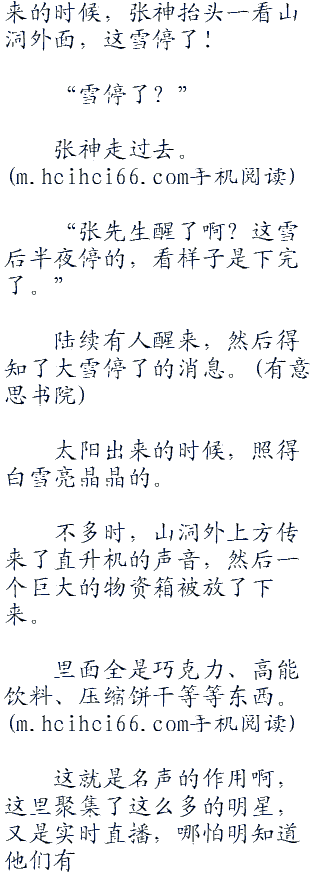 来的时候，张神抬头一看山
洞外面，这雪停了！
“雪停了？”
张神走过去。
(m.hcihci66.com手机阅读)
“张先生醒了啊？这雪
后半夜停的，看样子是下完
了。”
陆续有人醒来，然后得
知了大雪停了的消息。(有意
思书院)
太阳出来的时候，照得
白雪亮晶晶的。
不多时，山洞外上方传
来了直升机的声音，然后一
个巨大的物资箱被放了下
来。
里面全是巧克力、高能
饮料、压缩饼干等等东西。
(m.hcihci66.com手机阅读)
这就是名声的作用啊，
这里聚集了这么多的明星，
又是实时直播，哪怕明知道
他们有